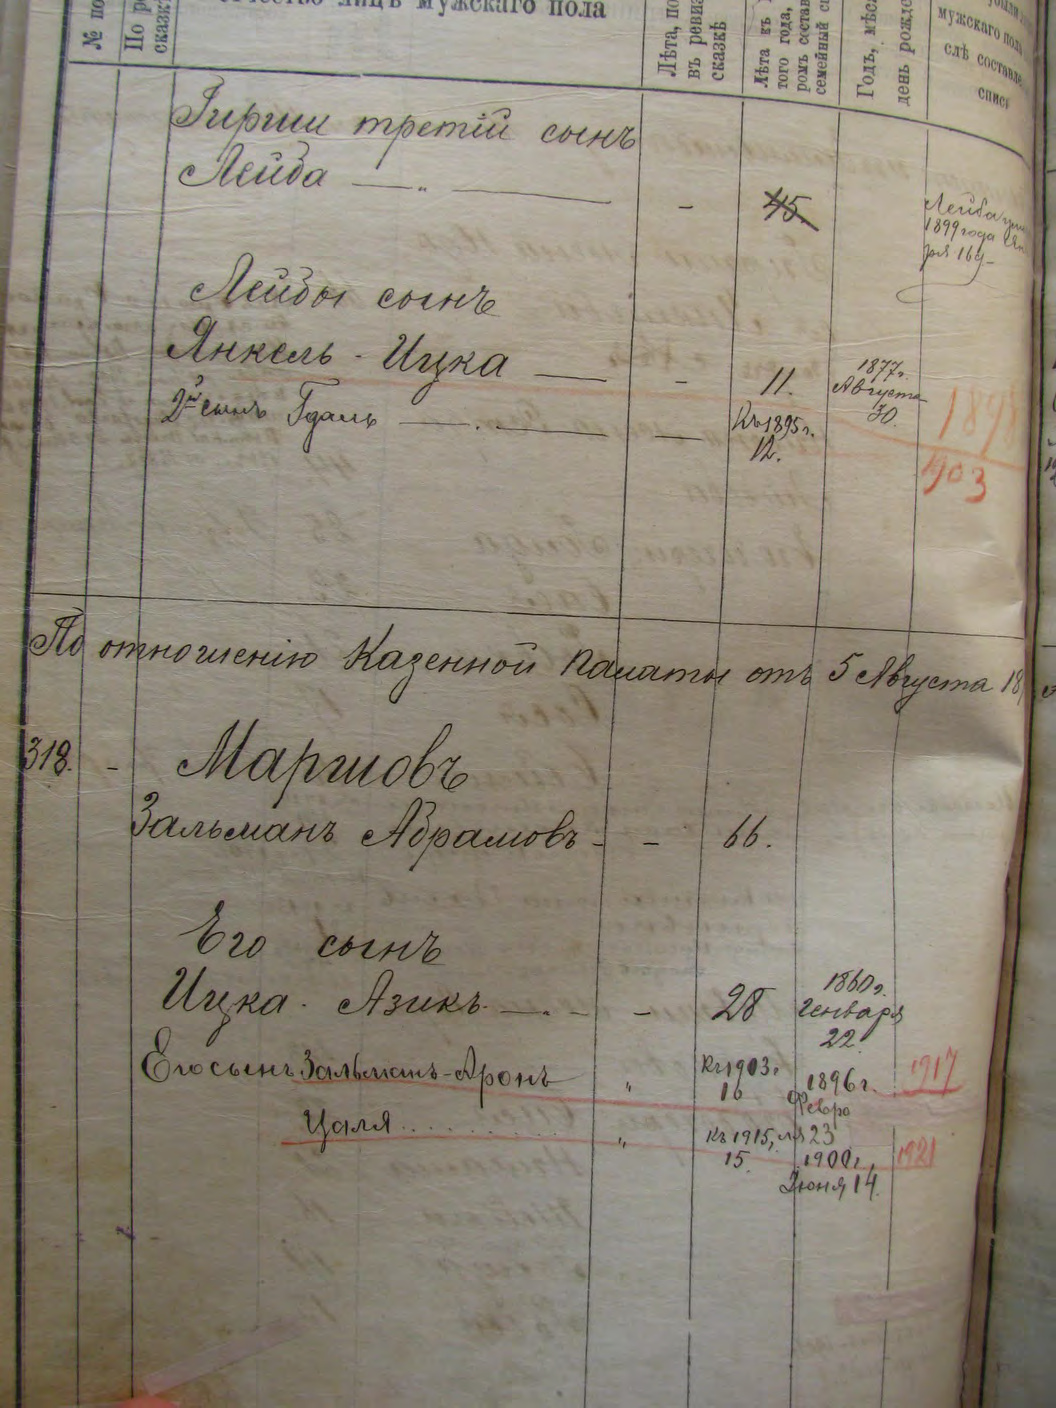 № по
По р
сказк
чество лицъ мужскаго пола
Лѣта, по
въ ревиз
сказкѣ
Лѣта къ
того года,
ромъ состав
семейный сп
Годъ, мѣся
день рожде
мужскаго пола
слѣ составле
списк
Гирши третій сынъ
Лейба — " — - 45.
Лейба
1899 года
ря 16
Лейбы сынъ
Янкель - Ицка — - 11. 1877 г. Августа 30. 1898
2й сынъ Гдаль — . — — Къ 1895 г. 12. 1903
По отношенію Казенной Палаты отъ 5 Августа 18
318. - Маршовъ
Зальманъ Абрамовъ - - 66.
Его сынъ
Ицка - Азикъ — . - - 28 1860 г. Генваря 22.
Его сынъ Зальманъ-Аронъ " Къ 1903 г. 16 1896 г. Февраля 23 1917
Цаля . . . . . . . . . " Къ 1915, 15. 1900 г., Іюня 14. 1921